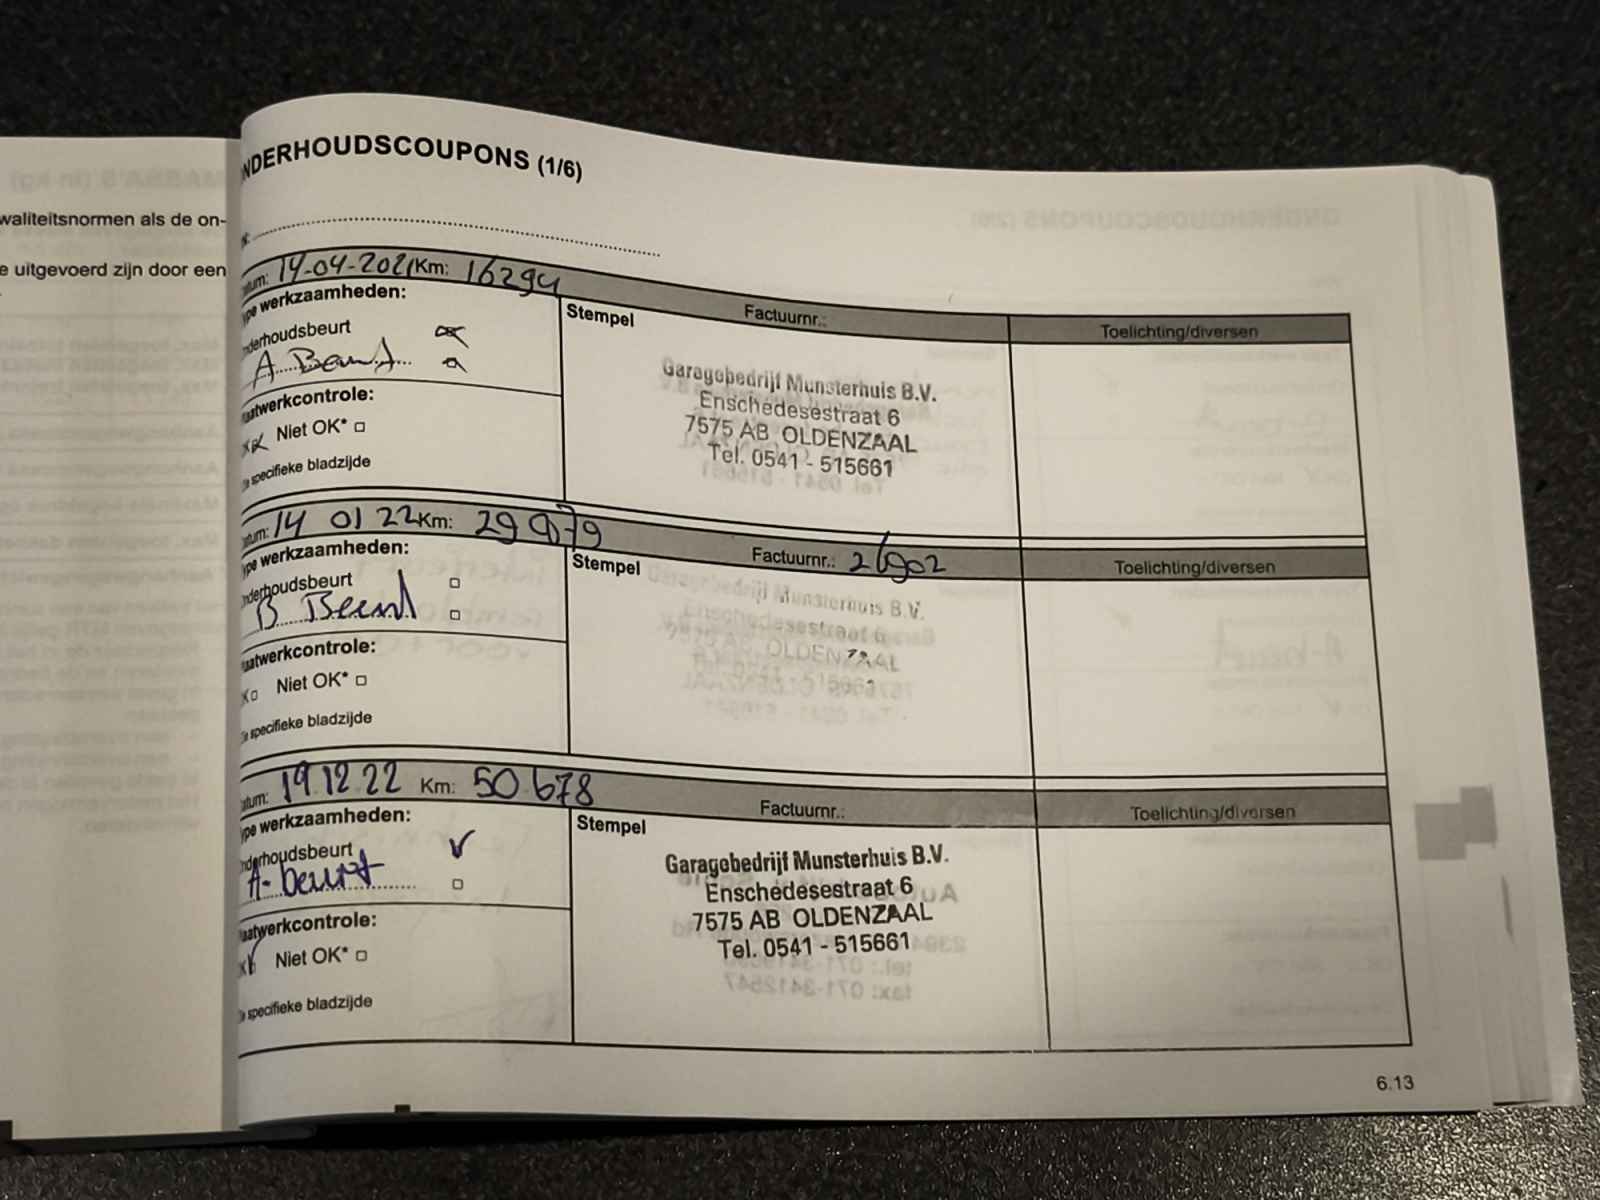 waliteitsnormen als de on-
e uitgevoerd zijn door een
NDERHOUDSCOUPONS (1/6)
tum: 14-04-2021 Km: 16294
Factuurnr.:
Toelichting/diversen
ype werkzaamheden:
nderhoudsbeurt
A Beurt
Stempel
Garagebedrijf Munsterhuis B.V.
Enschedesestraat 6
7575 AB OLDENZAAL
Tel. 0541 - 515661
laatwerkcontrole:
Niet OK*
specifieke bladzijde
atum: 14 01 22 Km: 29979
Factuurnr.: 26902
Toelichting/diversen
ype werkzaamheden:
nderhoudsbeurt
B Beurt
Stempel
Garagebedrijf Munsterhuis B.V.
Enschedesestraat 6
7575 AB OLDENZAAL
Tel. 0541 - 515661
laatwerkcontrole:
Niet OK*
specifieke bladzijde
atum: 19.12.22 Km: 50.678
Factuurnr.:
Toelichting/diversen
ype werkzaamheden:
nderhoudsbeurt
A-beurt
Stempel
Garagebedrijf Munsterhuis B.V.
Enschedesestraat 6
7575 AB OLDENZAAL
Tel. 0541 - 515661
laatwerkcontrole:
Niet OK*
specifieke bladzijde
6.13